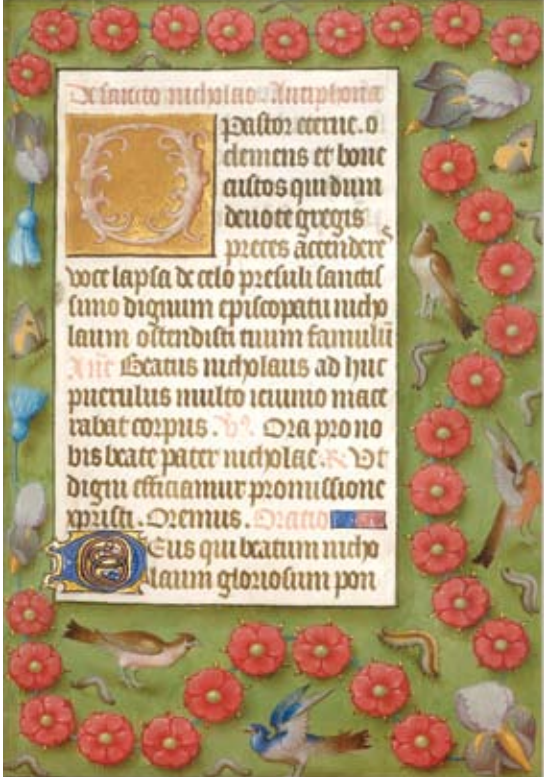 De sancto nicholao. Antiphona
O Pastor eterne. o
clemens et bone
custos qui dum
deuote gregis
preces attenderes
voce lapsa de celo presuli sanctis
simo dignum episcopatu nicho
laum ostendisti tuum famulū
Añe Beatus nicholaus ad huc
puerulus multo ieiunio mace
rabat corpus. V̛. Ora pro no
bis beate pater nicholae. R. Vt
digni efficiamur promissione
xpristi. Oremus. Oratio
Deus qui beatum nicho
laum gloriosum pon